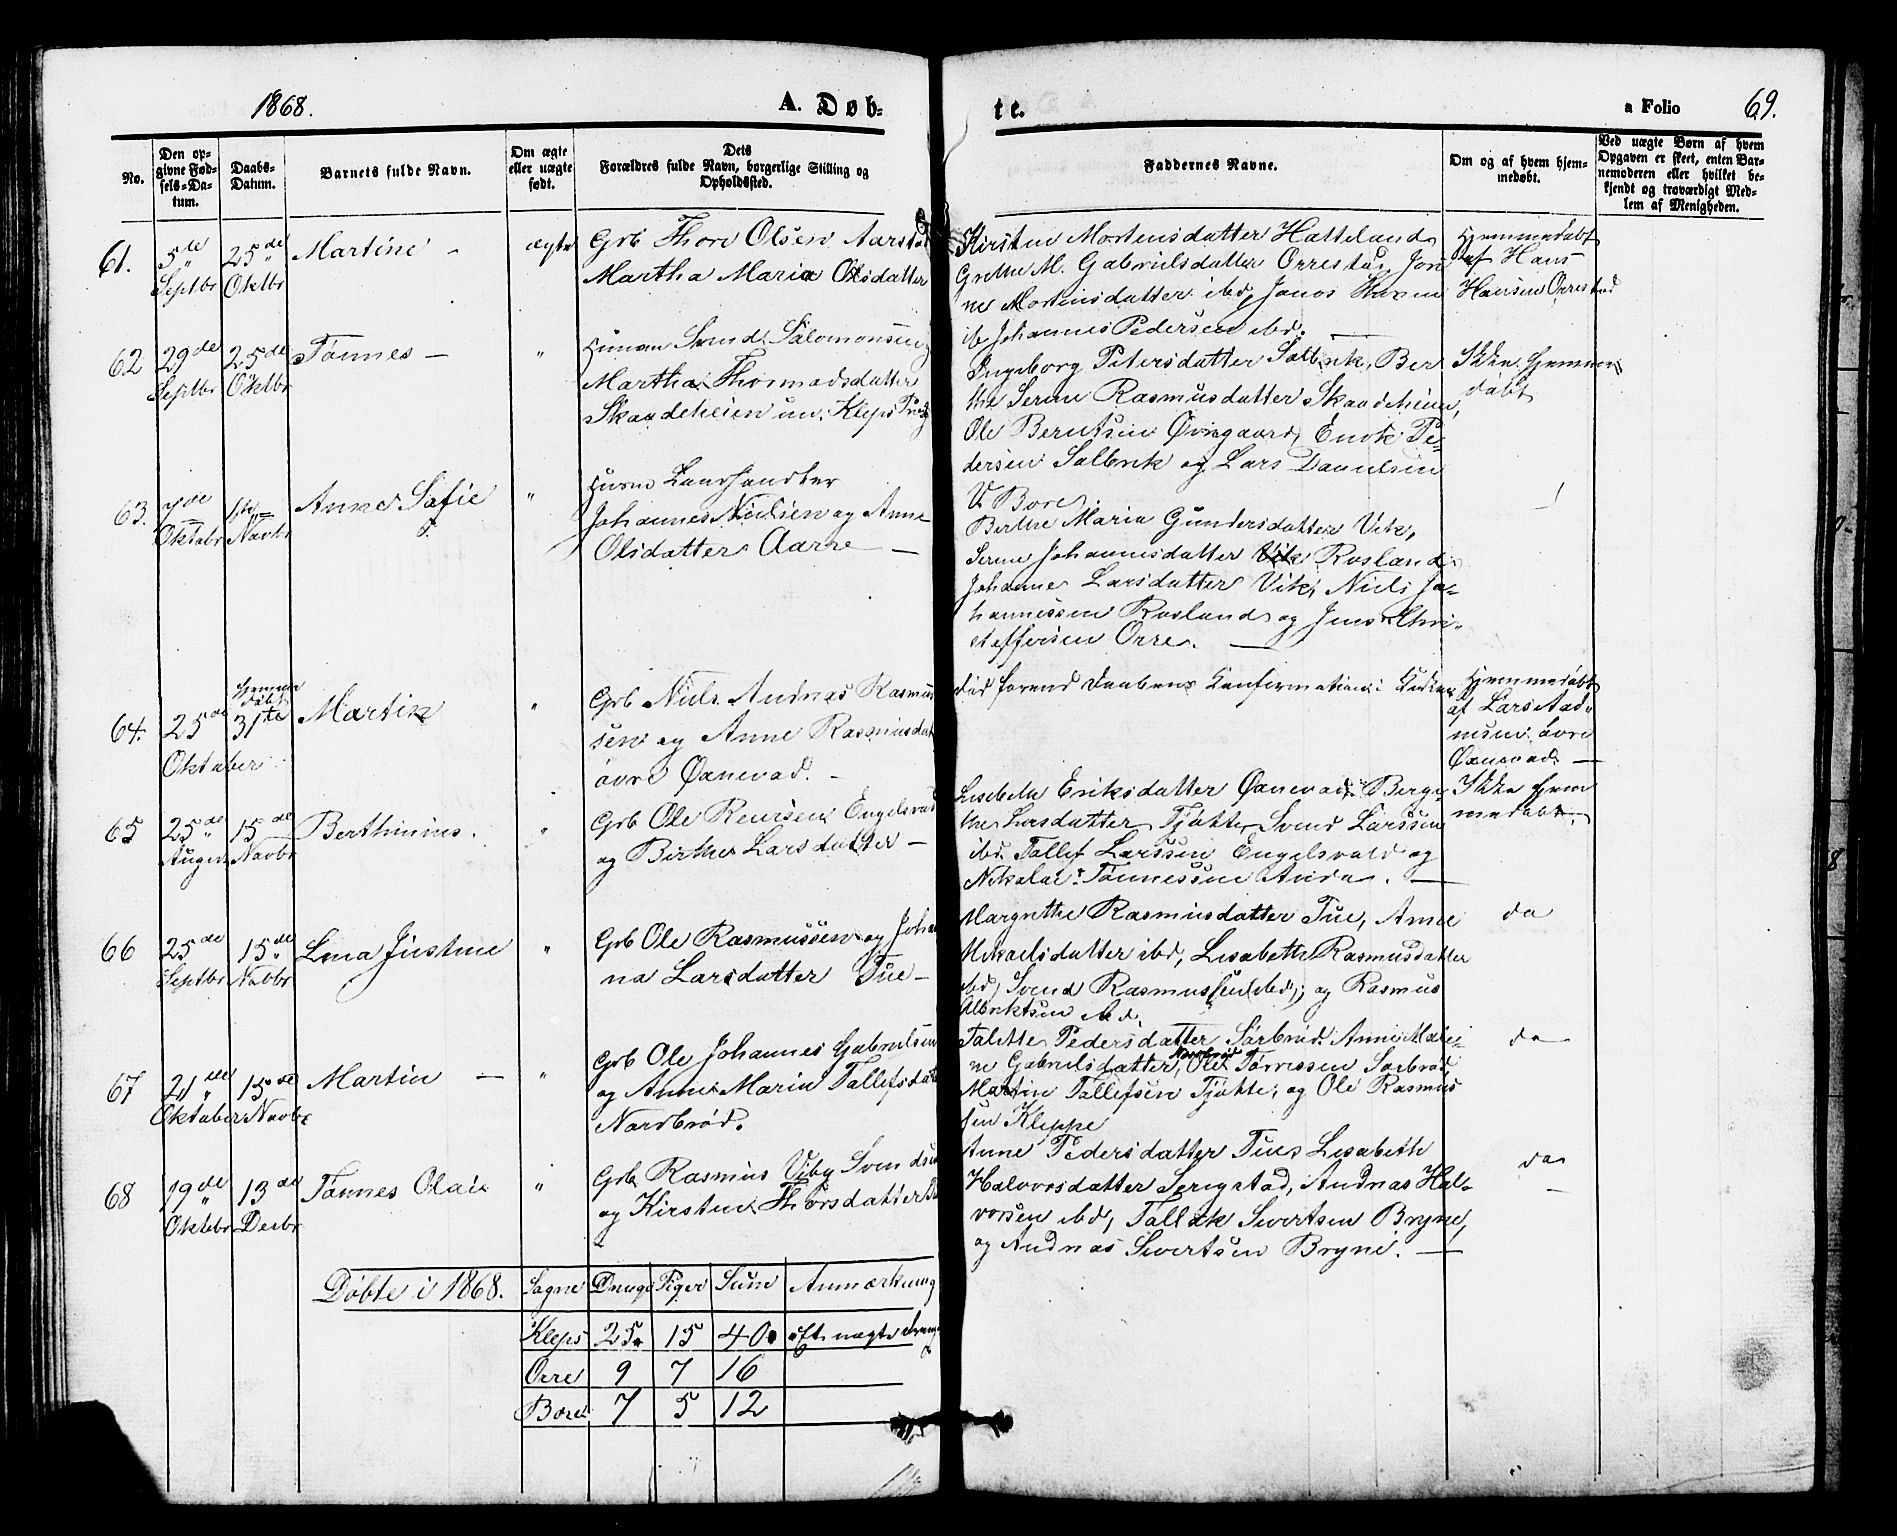 1868.
A. Døb-
te.
a Folio 69.
No.
Den op-
givne Fød-
sels-Da-
tum.
Daabs-
Datum.
Barnets fulde Navn.
Om ægte
eller uægte
født.
Dets
Forældres fulde Navn, borgerlige Stilling og
Opholdssted.
Faddernes Navne.
Om og af hvem hjem-
medøbt.
Ved uægte Børn af hvem
Opgaven er skeet, enten Bar-
nemoderen eller hvilket be-
kjendt og troværdigt Med-
lem af Menigheden.
61.
5te
Septbr
25de
Oktbr
Martine -
ægte
Grb Thore Olsen Aarstad
Martha Maria Olsdatter
Kirsten Mortensdatter Hatteland
Grethe M. Gabrielsdatter Orrestad,
ne Mortensdatter ibd, Jonas
ib Johannes Pedersen ibd. -
Hjemmedøbt
af Hans
Hansen Orrestad
62
29de
Septbr
25de
Oktbr
Tønnes -
"
Svend Salomonsen
Martha Thormodsdatter
Skaadeheien un. Kleps Præstg
Ingeborg Petersdatter Salbrik, Ber
the Serine Rasmusdatter Skaadeheien,
Ole Berntsen Øvregaard, Enok Pe-
dersen Salbrik og Lars Danielsen
V Bore.
Ikke Hjemme-
døbt
63.
7de
Oktobr
1ste
Novbr
Anne Sofie
"
Landhandler
Johannes Nielsen og Anne
Olsdatter Aarre -
Berthe Maria Gundersdatter Vik,
Serine Johannesdatter Vik Rosland
Johanne Larsdatter Vik, Niels Jo-
hannessen Rosland og Jens Chri-
stoffersen Orre. -
64.
25de
Oktober
Hjemme
døbt
31te
Martin
"
Grb Niels Andreas Rasmus
sen og Anne Rasmusdat
øvre Øxnevad. -
død forend Daabens Konfirmation i Kirken
Hjemmedøbt
af Lars Aad-
nesen øvre
Øxnevad -
65
25de
August
15de
Novbr
Berthinius.
"
Grb Ole Reiersen Engelsvold
og Birthe Larsdatter -
Lisebeth Eriksdatter Øxnevad, Berge-
the Larsdatter Tjøtte, Svend Larssen
ibd. Tollef Larssen Engelsvold og
Nikolai Tønnessen Anda. -
Ikke hjem
medøbt.
66
25de
Septbr
15de
Novbr
Lina Justine
"
Grb Ole Rasmussen og Johan
na Larsdatter Tue -
Margrethe Rasmusdatter Tue, Anne
Mikaelsdatter ibd, Lisabeth Rasmusdatter
ibd, Svend Rasmussen ibd, og Rasmus
Albriktsen ibd.
do
67
21de
Oktober
15de
Novbr
Martin -
"
Grb Ole Johannes Gabrielsen
og Anne Marie Tollefsdat
Nordbrød.
Talette Pedersdatter Sørbrød. Anne Mali-
ne Gabrielsdatter Nordbrød, Ole Tørressen Sørbrød
Martin Tollefsen Tjøtte, og Ole Rasmus
sen Kleppe
do
68
19de
Oktbr
13de
Desbr
Tønnes Olai
"
Grb Rasmus Viby Svendsen
og Kirsten Thorsdatter
Anne Pedersdatter Tues Lisabeth
Halvorsdatter Serigstad, Andreas Hal-
vorsen ibd, Tollak Sivertsen Bryne,
og Andreas Sivertsen Bryne. -
do
-
Døbte i 1868.
Sogne Drenge Piger Sum Anmærkning
Klep 25. 15 40. 1 uægte dreng
Orre 9 7 16
Bore 7 5 12